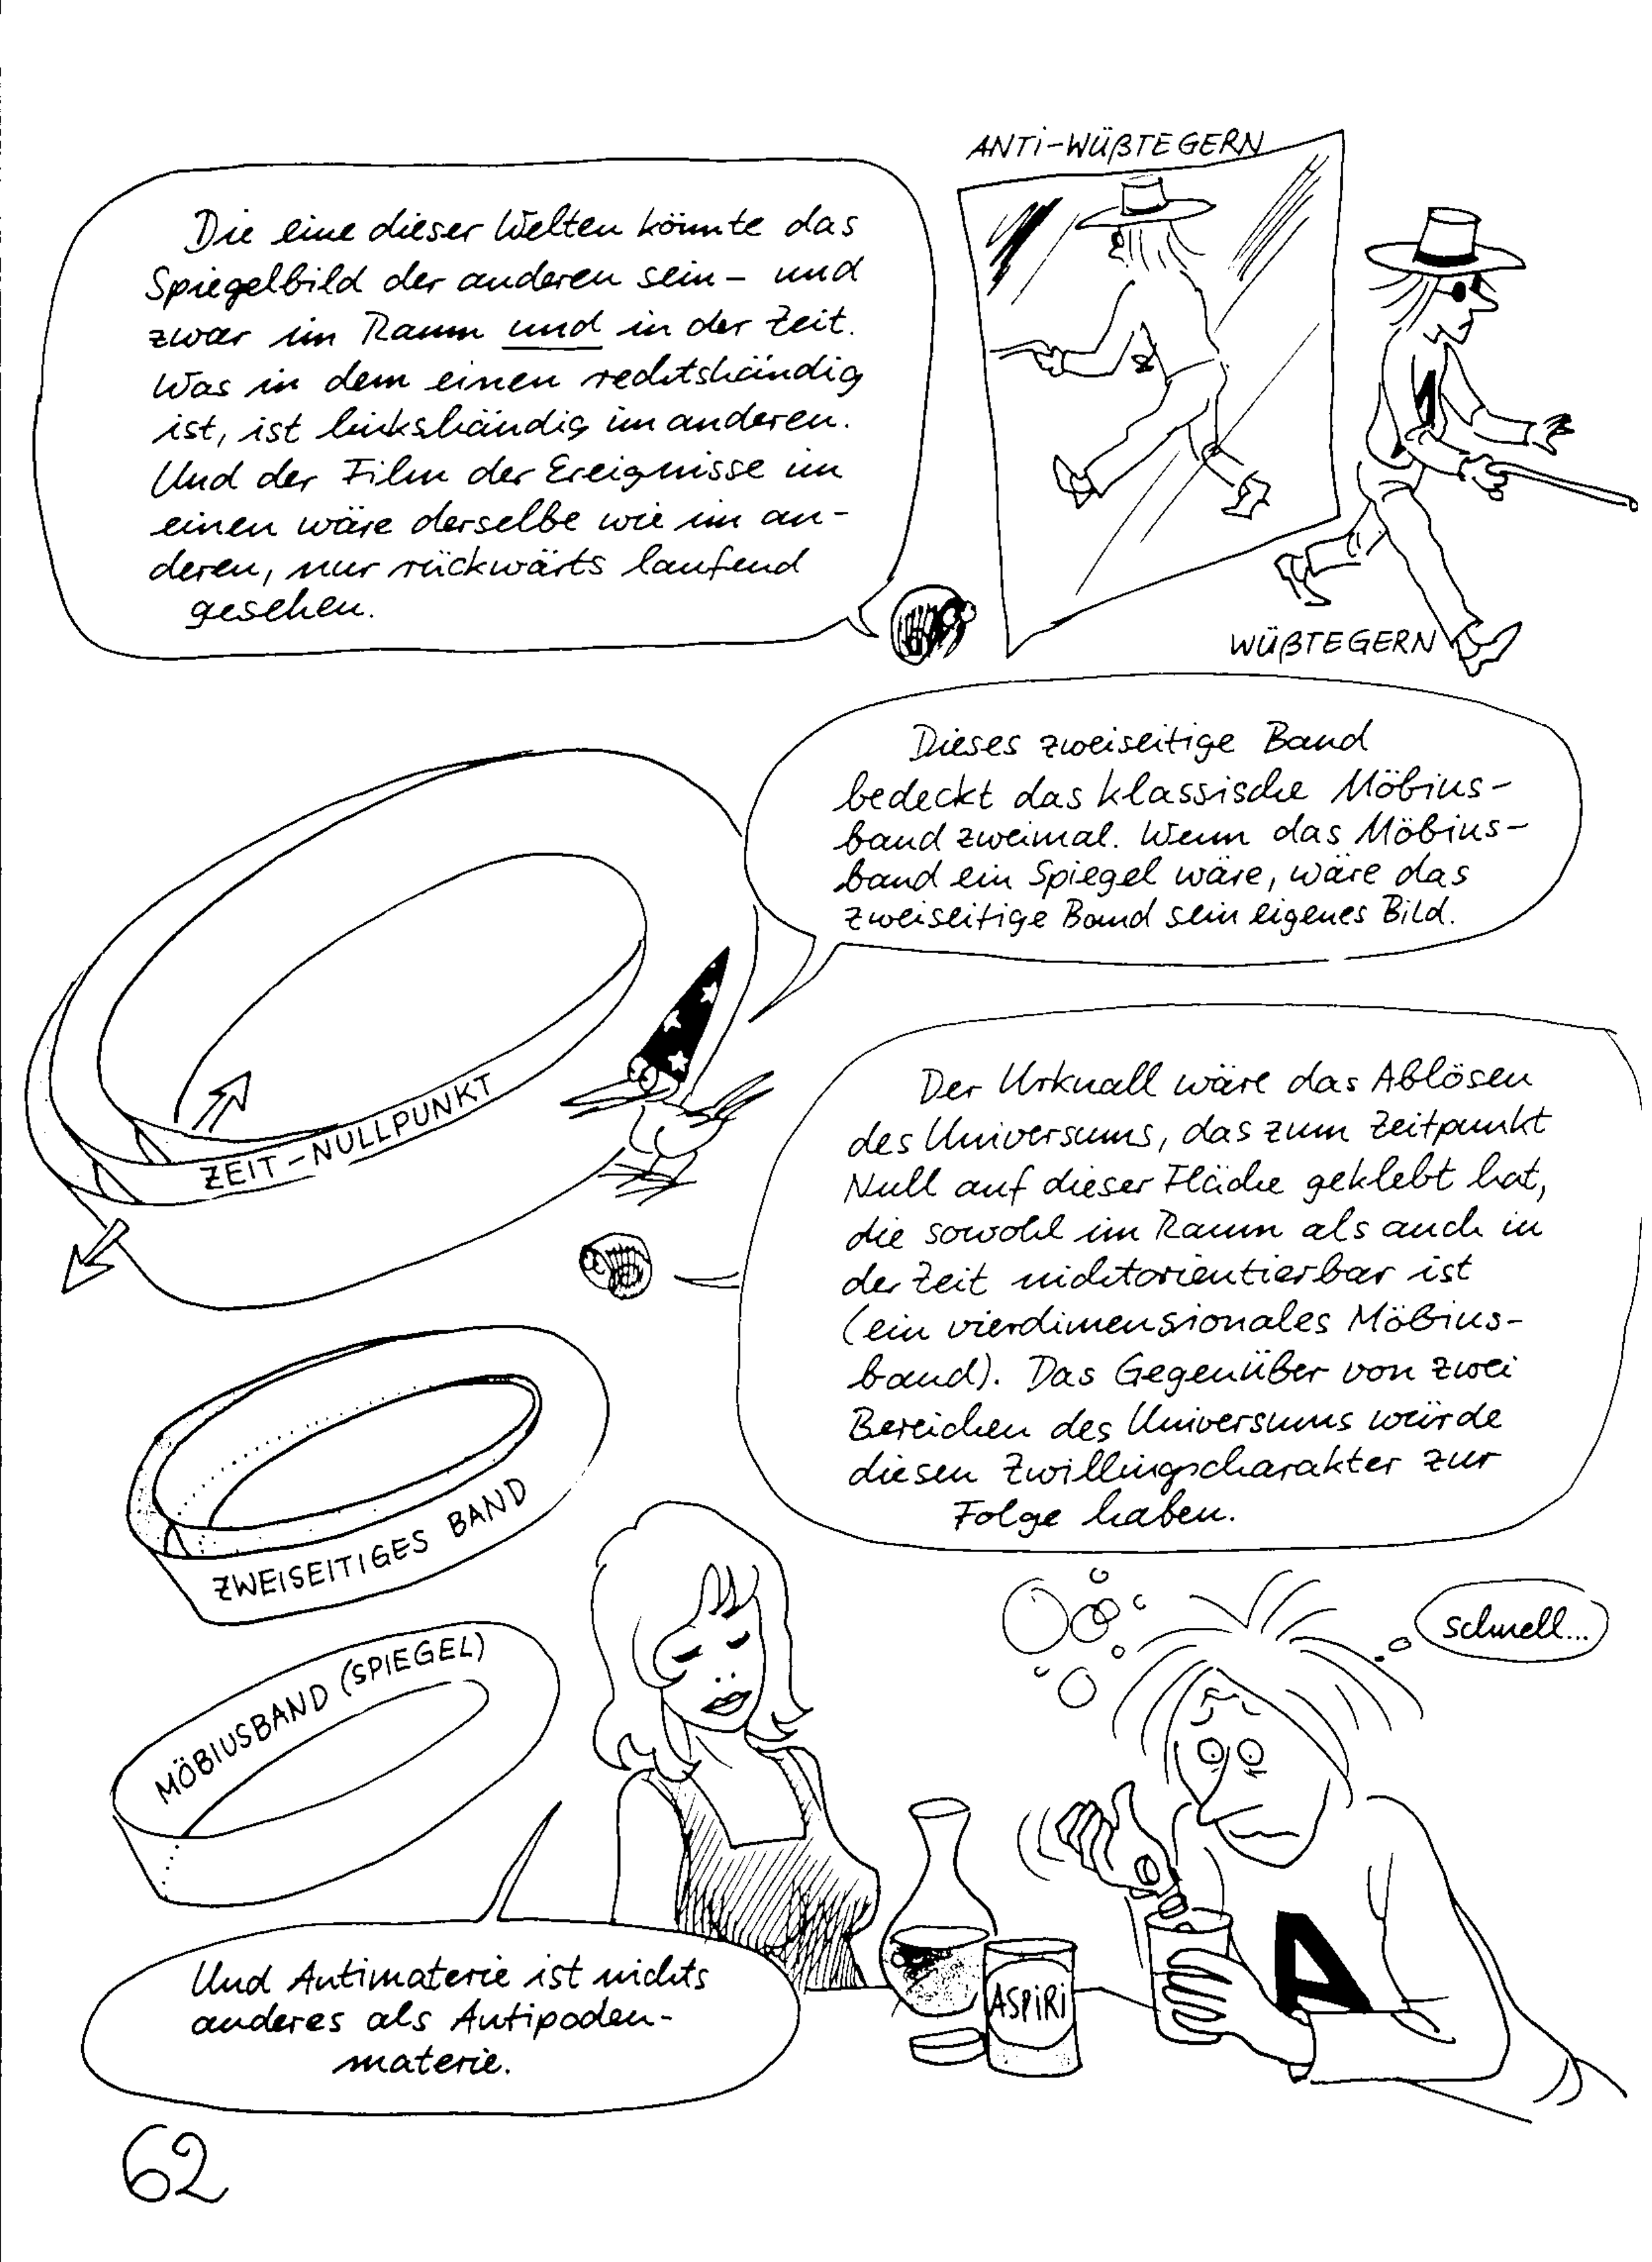 ANTI-WÜßTEGERN
Die eine dieser Welten könnte das
Spiegelbild der anderen sein - und
zwar im Raum und in der Zeit.
Was in dem einen rechtshändig
ist, ist linkshändig im anderen.
Und der Film der Ereignisse im
einen wäre derselbe wie im an-
deren, nur rückwärts laufend
gesehen.
WÜßTEGERN
Dieses zweiseitige Band
bedeckt das klassische Möbius-
band zweimal. Wenn das Möbius-
band ein Spiegel wäre, wäre das
zweiseitige Band sein eigenes Bild.
ZEIT-NULLPUNKT
Der Urknall wäre das Ablösen
des Universums, das zum Zeitpunkt
Null auf dieser Fläche geklebt hat,
die sowohl im Raum als auch in
der Zeit nichtorientierbar ist
(ein vierdimensionales Möbius-
band). Das Gegenüber von zwei
Bereichen des Universums würde
diesen Zwillingscharakter zur
Folge haben.
ZWEISEITIGES BAND
MÖBIUSBAND (SPIEGEL)
schnell...
A
ASPIRI
Und Antimaterie ist nichts
anderes als Antipoden-
materie.
62